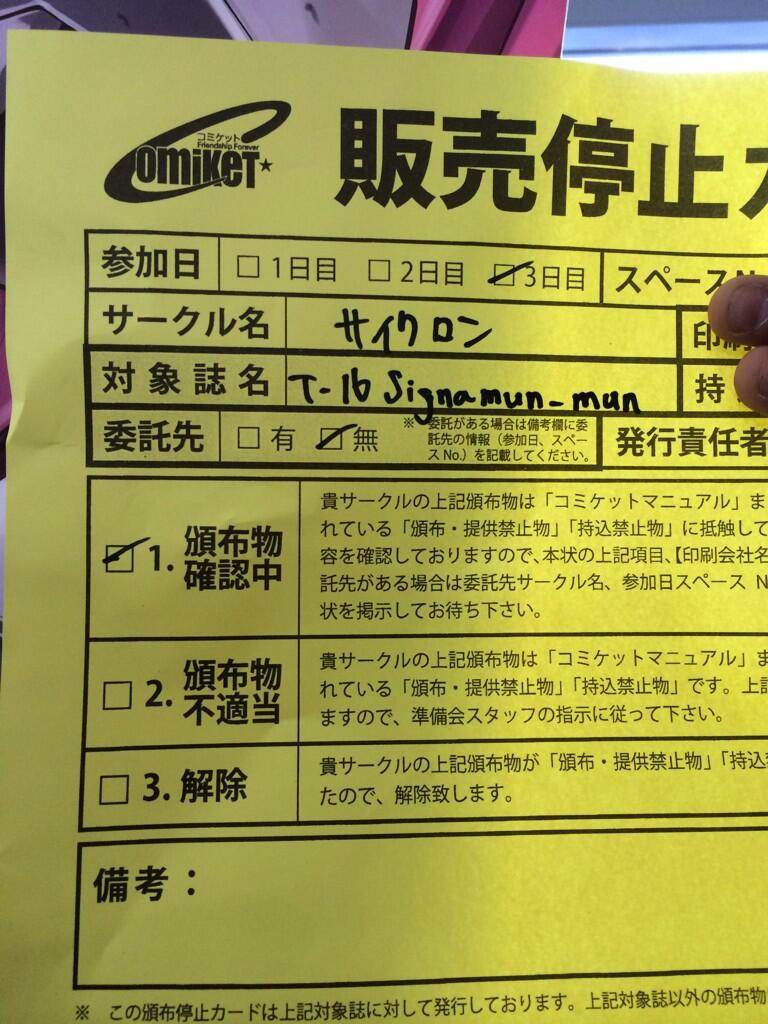 コミケット
Friendship Forever
ComiKeT★
販売停止カ
参加日 □1日目 □2日目 ☑3日目 スペースN
サークル名 サイクロン 印刷
対象誌名 T-16 Signamun-mun 持
委託先 □有 ☑無 ※委託がある場合は備考欄に委
託先の情報（参加日、スペー
スNo.）を記載してください。
発行責任者
☑1. 頒布物
確認中
貴サークルの上記頒布物は「コミケットマニュアル」ま
れている「頒布・提供禁止物」「持込禁止物」に抵触して
容を確認しておりますので、本状の上記項目、【印刷会社名
託先がある場合は委託先サークル名、参加日スペース N
状を掲示してお待ち下さい。
□2. 頒布物
不適当
貴サークルの上記頒布物は「コミケットマニュアル」ま
れている「頒布・提供禁止物」「持込禁止物」です。上記
ますので、準備会スタッフの指示に従って下さい。
□3. 解除
貴サークルの上記頒布物が「頒布・提供禁止物」「持込
たので、解除致します。
備考：
※ この頒布停止カードは上記対象誌に対して発行しております。上記対象誌以外の頒布物